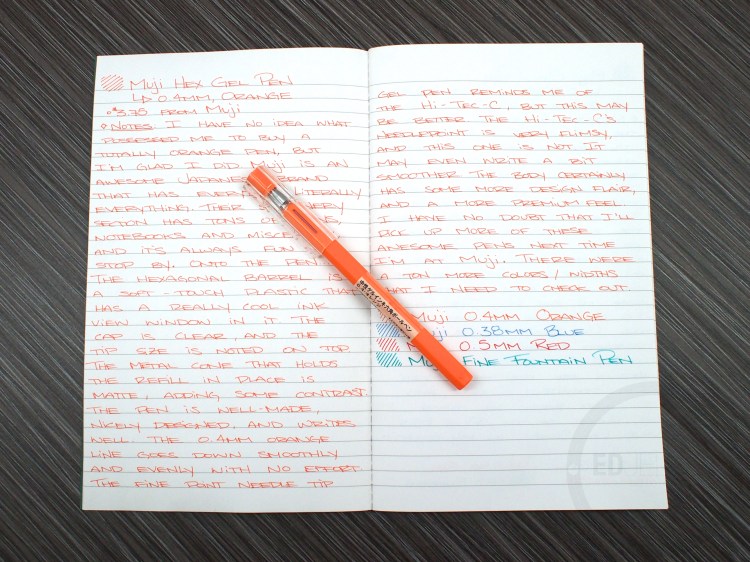 Muji Hex Gel Pen
↳ 0.4mm, Orange
$3.75 from Muji
Notes: I have no idea what
possessed me to buy a
totally orange pen, but
I'm glad I did. Muji is an
awesome Japanese brand
that has literally
everything. Their
section has tons of
notebooks and
and it's always fun
stop by. Onto the pen
The hexagonal barrel is
a soft-touch plastic that
has a really cool ink
view window in it. The
cap is clear, and the
tip size is noted on top.
The metal cone that holds
the refill in place is
matte, adding some contrast.
The pen is well-made,
nicely designed, and writes
well. The 0.4mm orange
line goes down smoothly
and evenly with no effort.
The fine point needle tip
gel pen reminds me of
the Hi-Tec-C, but this may
be better. The Hi-Tec-C's
needlepoint is very flimsy,
and this one is not. It
may even write a bit
smoother. The body certainly
has some more design flair,
and a more premium feel.
I have no doubt that I'll
pick up more of these
awesome pens next time
I'm at Muji. There were
a ton more colors/widths
that I need to check out.
Muji 0.4mm Orange
Muji 0.38mm Blue
0.5mm Red
Muji Fine Fountain Pen
ED